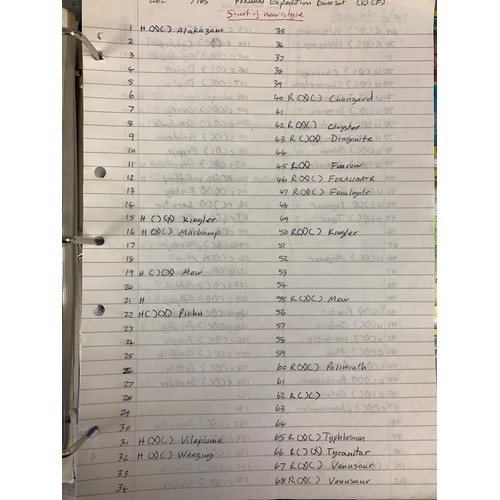 /165 Pokémon Expedition Base Set (R) (F)
Start of new style
1 H (X)( ) Alakazam
2
3
4
5
6
7
8
9
10
11
12
13
14
15 H ( )(X) Kingler
16 H (X)( ) Machamp
17
18
19 H ( )(X) Mew
20
21 H
22 H( )(X) Pichu
23
24
25
26
27
28
29
30
31 H (X)( ) Vileplume
32 H (X)( ) Weezing
33
34
35
36
37
38
39
40 R (X)( ) Charizard
41
42 R (X)( ) Cloyster
43 R ( )(X) Dragonite
44
45 R(X) Fearow
46 R(X)( ) FERALIGATR
47 R(X)( ) Feraligatr
48
49
50 R(X)( ) Kingler
51
52
53
54
55 R(X)( ) Mew
56
57
58
59
60 R (X)( ) Poliwrath
61
62 R ( )( )
63
64
65 R(X)( ) Typhlosion
66 R( )(X) Tyranitar
67 R(X)( ) Venusaur
68 R(X)( ) Venusaur